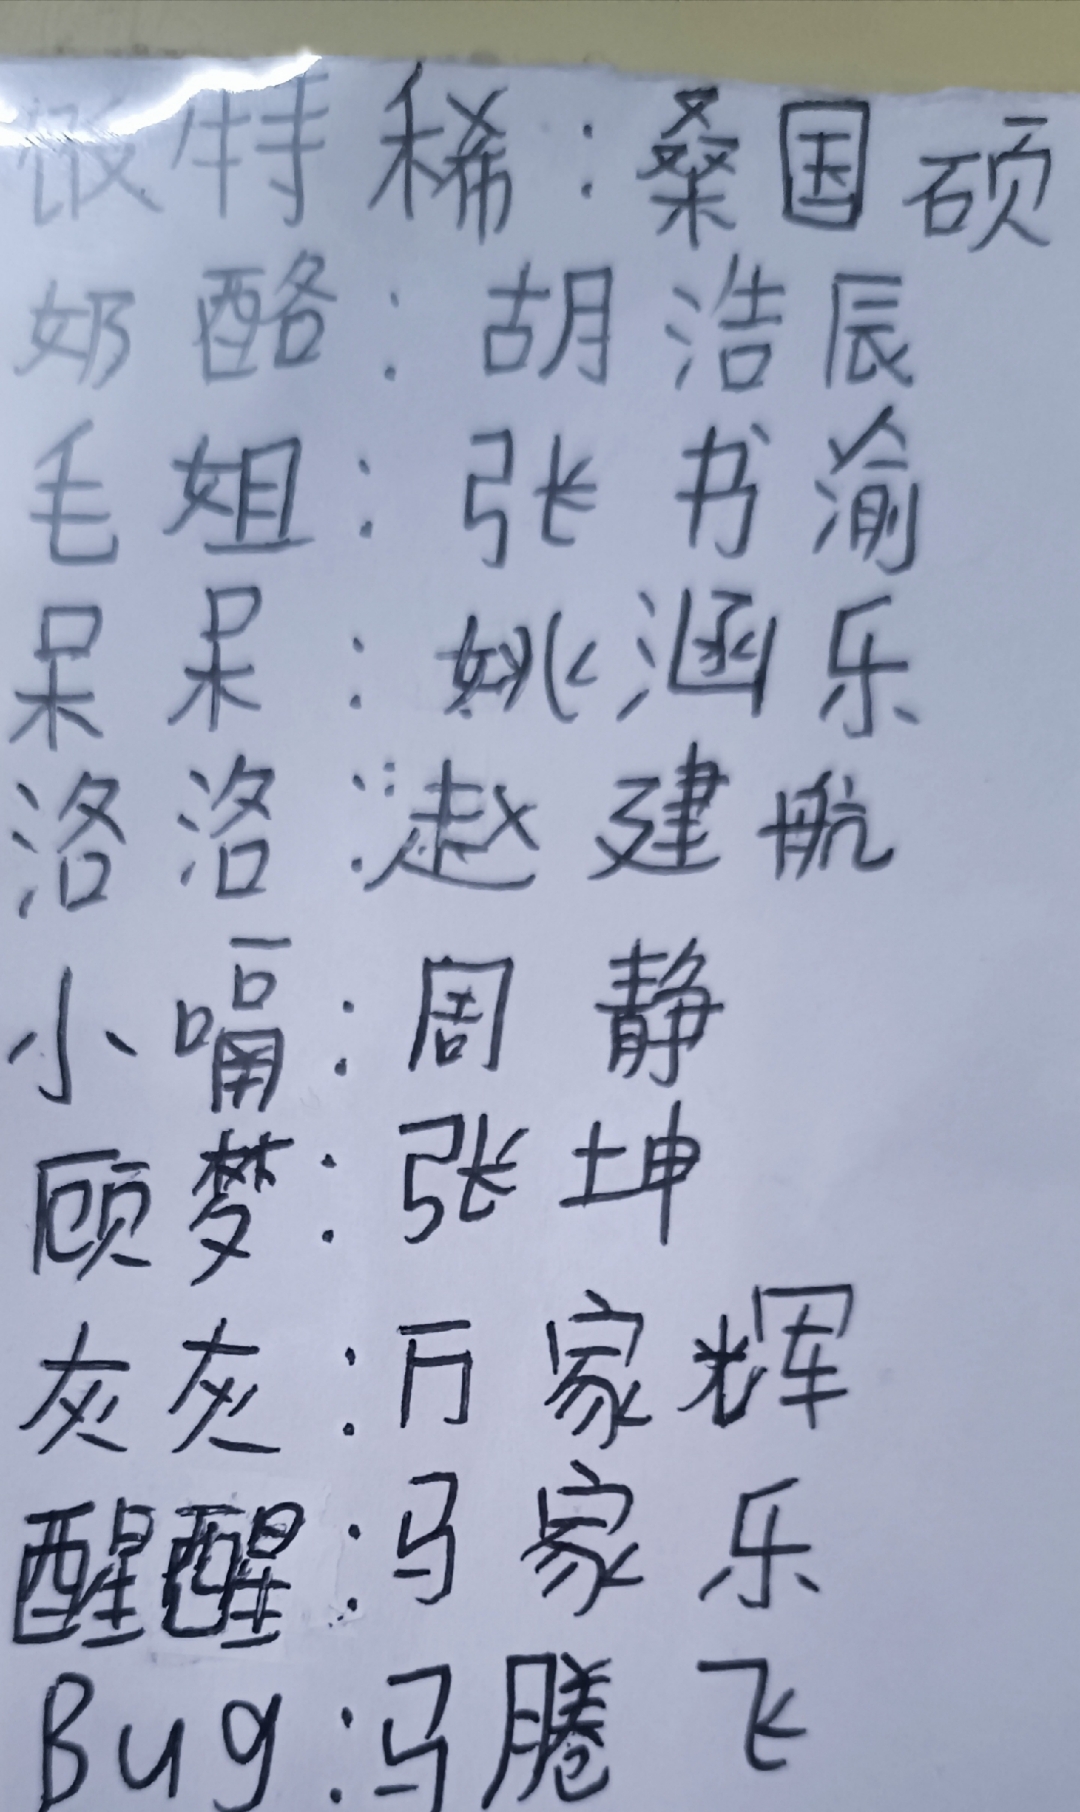 特稀：桑国硕
奶酪：胡浩辰
毛姐：张书渝
呆呆：姚涵乐
洛洛：赵建航
小嗝：周静
顾梦：张坤
灰灰：万家辉
醒醒：马家乐
Bug：马腾飞